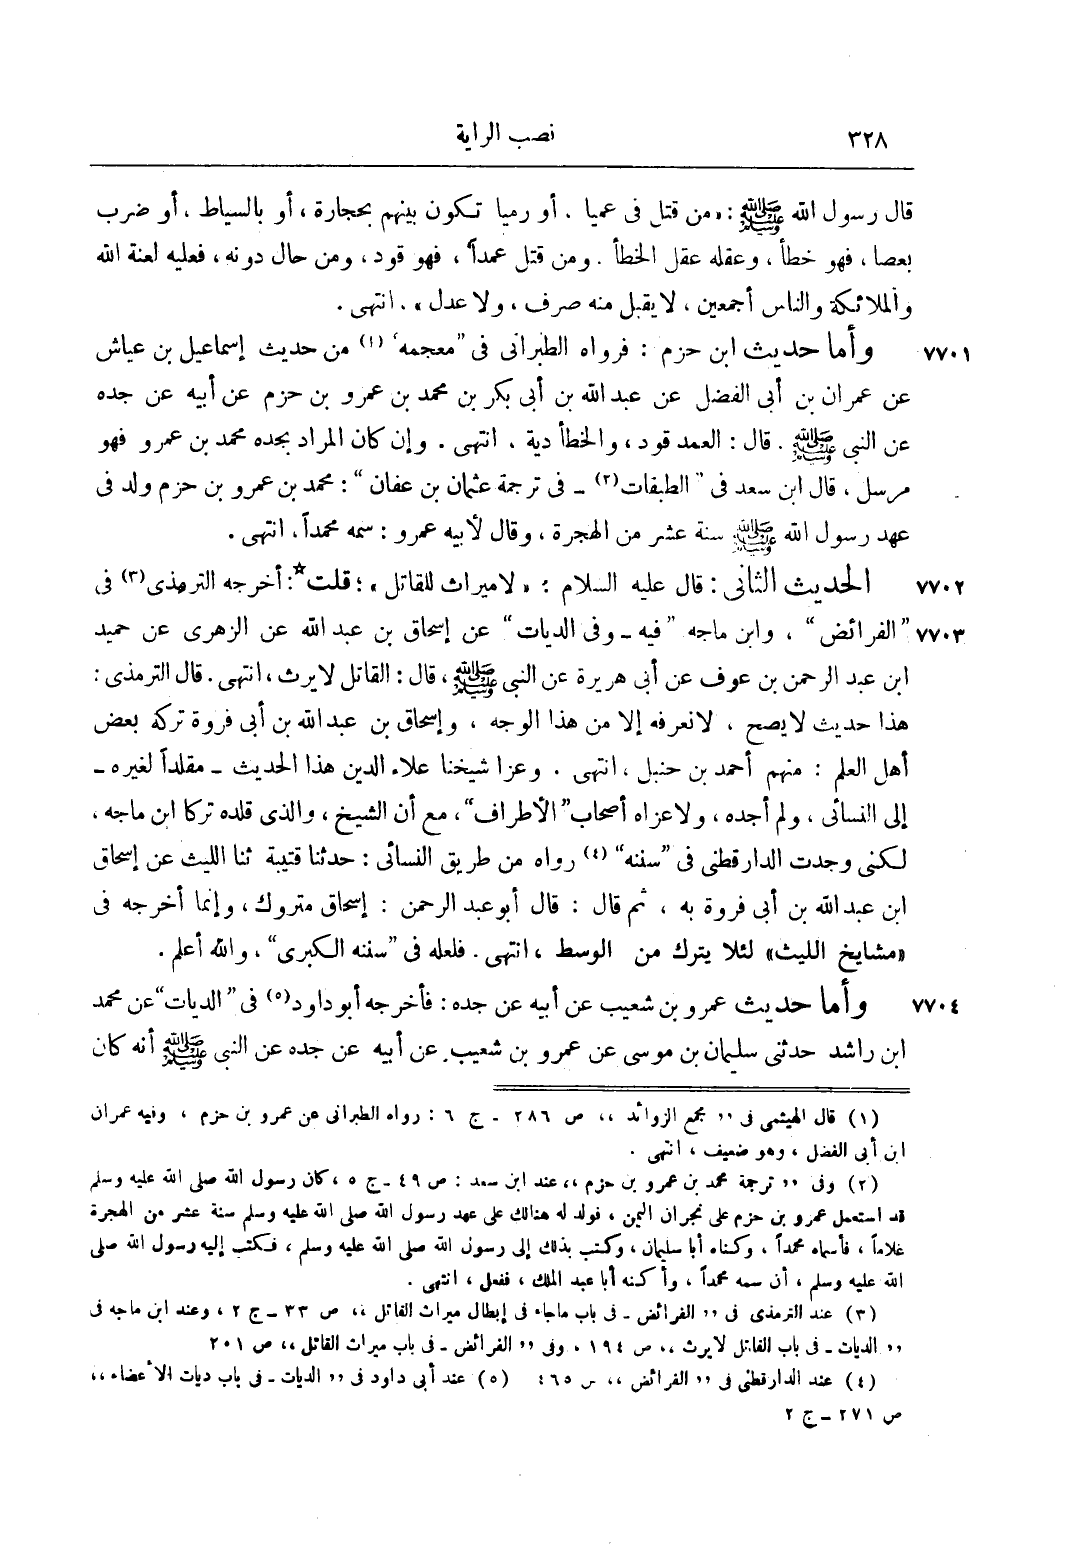 ٣٢٨ نصب الراية
قال رسول الله ﷺ : «من قتل فى عميا ، أو رميا تكون بينهم بحجارة ، أو بالسياط ، أو ضرب
بعصا ، فهو خطأ ، وعقله عقل الخطأ . ومن قتل عمداً ، فهو قود ، ومن حال دونه ، فعليه لعنة الله
والملائكة والناس أجمعين ، لايقبل منه صرف ، ولا عدل» . انتهى .
٧٧٠١ وأما حديث ابن حزم : فرواه الطبرانى فى "معجمه" (١) من حديث إسماعيل بن عياش
عن عمران بن أبى الفضل عن عبد الله بن أبى بكر بن محمد بن عمرو بن حزم عن أبيه عن جده
عن النبى ﷺ . قال : العمد قود ، والخطأ دية . انتهى . وإن كان المراد بجده محمد بن عمرو فهو
مرسل ، قال ابن سعد فى "الطبقات (٢) ـ فى ترجمة عثمان بن عفان" : محمد بن عمرو بن حزم ولد فى
عهد رسول الله ﷺ سنة عشر من الهجرة ، وقال لأبيه عمرو : سمه محمداً ، انتهى .
٧٧٠٢ الحديث الثانى : قال عليه السلام : «لاميراث للقاتل» ؛ قلت* : أخرجه الترمذى (٣) فى
٧٧٠٣ "الفرائض" ، وابن ماجه "فيه ـ وفى الديات" عن إسحاق بن عبد الله عن الزهرى عن حميد
ابن عبد الرحمن بن عوف عن أبى هريرة عن النبى ﷺ ، قال : القاتل لايرث ، انتهى . قال الترمذى :
هذا حديث لايصح ، لانعرفه إلا من هذا الوجه ، وإسحاق بن عبد الله بن أبى فروة تركه بعض
أهل العلم : منهم أحمد بن حنبل ، انتهى . وعزا شيخنا علاء الدين هذا الحديث ـ مقلداً لغيره ـ
إلى النسائى ، ولم أجده ، ولاعزاه أصحاب "الأطراف" ، مع أن الشيخ ، والذى قلده تركا ابن ماجه ،
لكنى وجدت الدارقطنى فى "سننه" (٤) رواه من طريق النسائى : حدثنا قتيبة ثنا الليث عن إسحاق
ابن عبد الله بن أبى فروة به ، ثم قال : قال أبو عبد الرحمن : إسحاق متروك ، وإنما أخرجه فى
«مشايخ الليث» لئلا يترك من الوسط ، انتهى . فلعله فى "سننه الكبرى" ، والله أعلم .
٧٧٠٤ وأما حديث عمرو بن شعيب عن أبيه عن جده : فأخرجه أبو داود (٥) فى "الديات" عن محمد
ابن راشد حدثنى سليمان بن موسى عن عمرو بن شعيب عن أبيه عن جده عن النبى ﷺ أنه كان
(١) قال الهيثمى فى ,, مجمع الزوائد ،، ص ٢٨٦ ـ ج ٦ : رواه الطبرانى عن عمرو بن حزم ، وفيه عمران
ابن أبى الفضل ، وهو ضعيف ، انتهى .
(٢) وفى ,, ترجمة محمد بن عمرو بن حزم ،، عند ابن سعد : ص ٤٩ ـ ج ٥ ، كان رسول الله صلى الله عليه وسلم
قد استعمل عمرو بن حزم على نجران اليمن ، فولد له هنالك على عهد رسول الله صلى الله عليه وسلم سنة عشر من الهجرة
غلاماً ، فأسماه محمداً ، وكناه أبا سليمان ، وكتب بذلك إلى رسول الله صلى الله عليه وسلم ، فكتب إليه رسول الله صلى
الله عليه وسلم ، أن سمه محمداً ، وأكنه أبا عبد الملك ، ففعل ، انتهى .
(٣) عند الترمذى فى ,, الفرائض ـ فى باب ماجاء فى إبطال ميراث القاتل ،، ص ٣٣ ـ ج ٢ ، وعند ابن ماجه فى
,, الديات ـ فى باب القاتل لايرث ،، ص ١٩٤ ، وفى ,, الفرائض ـ فى باب ميراث القاتل ،، ص ٢٠١
(٤) عند الدارقطنى فى ,, الفرائض ،، ص ٤٦٥ (٥) عند أبى داود فى ,, الديات ـ فى باب ديات الأعضاء ،،
ص ٢٧١ ـ ج ٢